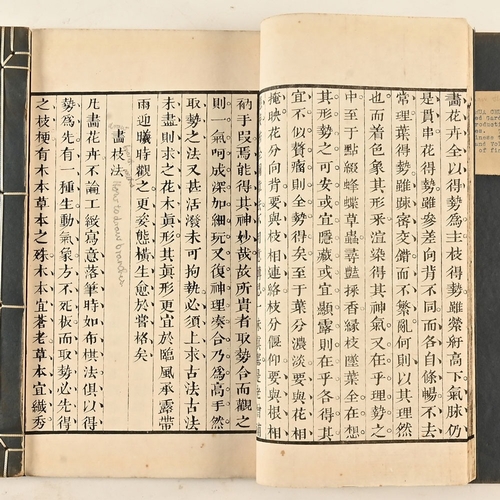 畵花卉全以得勢爲主枝得勢雖縈紆高下氣脉仍
是貫串花得勢雖參差向背不同而各自條暢不去
常理葉得勢雖疎密交錯而不繁亂何則以其理然
也而着色象其形采渲染得其神氣又在乎理勢之
中至于點綴蜂蝶草蟲尋艷採香緣枝墜葉全在想
其形勢之可安或宜隱藏或宜顯露則在乎各得其
宜不似贅瘤則全勢得矣至于葉分濃淡要與花相
掩映花分向背要與枝相連絡枝分偃仰要與根相
衲手叚焉能得其神妙哉故所貴者取勢合而觀之
則一氣呵成深加細玩又復神理奏合乃爲高手然
取勢之法又甚活潑未可拘執必須上求古法古法
未盡則求之花木眞形其眞形更宜於臨風承露帶
雨迎曦時觀之更姿態橫生愈於嘗格矣
畵枝法
How to draw branches
凡畵花卉不論工緻寫意落筆時如布棋法俱以得
勢爲先有一種生動氣象方不死板而取勢必先得
之枝梗有木本草本之殊木本宜蒼老草本宜纖秀